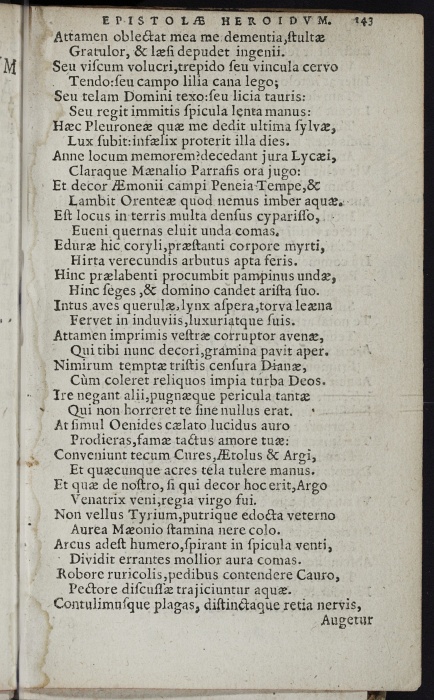 EPISTOLÆ HEROIDVM. 143
Attamen oblectat mea me dementia, ſtultæ
Gratulor, & læſi depudet ingenii.
Seu viſcum volucri, trepido ſeu vincula cervo
Tendo: ſeu campo lilia cana lego;
Seu telam Domini texo: ſeu licia tauris:
Seu regit immitis ſpicula lenta manus:
Hæc Pleuroneæ quæ me dedit ultima ſylvæ,
Lux ſubit: infælix proterit illa dies.
Anne locum memorem? decedant jura Lycæi,
Claraque Mænalio Parraſis ora jugo:
Et decor Æmonii campi Peneia Tempe, &
Lambit Orenteæ quod nemus imber aquæ.
Eſt locus in terris multa denſus cypariſſo,
Eueni quernas eluit unda comas.
Eduræ hic coryli, præſtanti corpore myrti,
Hirta verecundis arbutus apta feris.
Hinc prælabenti procumbit pampinus undæ,
Hinc ſeges, & domino candet ariſta ſuo.
Intus aves querulæ, lynx aſpera, torva leæna
Fervet in induviis, luxuriatque ſuis.
Attamen imprimis veſtræ corruptor avenæ,
Qui tibi nunc decori, gramina pavit aper.
Nimirum temptæ triſtis cenſura Dianæ,
Cùm coleret reliquos impia turba Deos.
Ire negant alii, pugnæque pericula tantæ
Qui non horreret te ſine nullus erat.
At ſimul Oenides cælato lucidus auro
Prodieras, famæ tactus amore tuæ:
Conveniunt tecum Cures, Ætolus & Argi,
Et quæcunque acres tela tulere manus.
Et quæ de noſtro, ſi qui decor hoc erit, Argo
Venatrix veni, regia virgo fui.
Non vellus Tyrium, putrique edocta veterno
Aurea Mæonio ſtamina nere colo.
Arcus adeſt humero, ſpirant in ſpicula venti,
Dividit errantes mollior aura comas.
Robore ruricolis, pedibus contendere Cauro,
Pectore diſcuſſæ trajiciuntur aquæ.
Contulimuſque plagas, diſtinctaque retia nervis,
Augetur